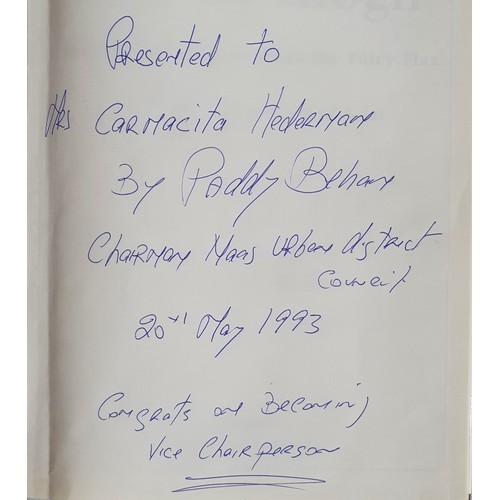 Presented to
Mrs Carmacita Hederman
By Paddy Behan
Chairman Naas Urban District
Council
20th May 1993
Congrats on Becoming
Vice Chairperson